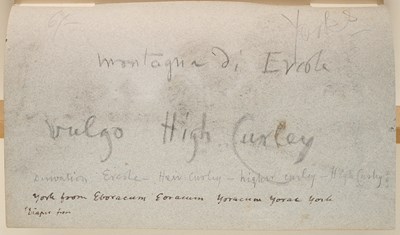 montagna di Ercole
vulgo High Curley
Ercole - Her-Curley - higher curley - High Curley
York from Eboracum Eoracum Yoracum Yorac York